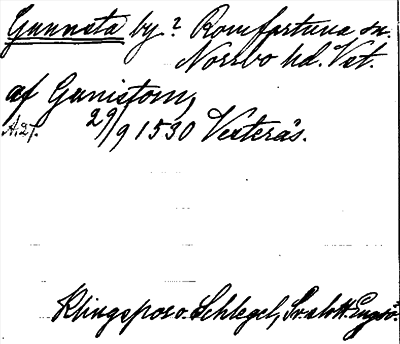 Gunnsta by? Romfartuna sn.
Norrbo hd. Vst.
af Gunistom,
A. 27. 29/9 1530 Vesterås.
Klingspor o. Schlegel, Sv. slott. Engsö.